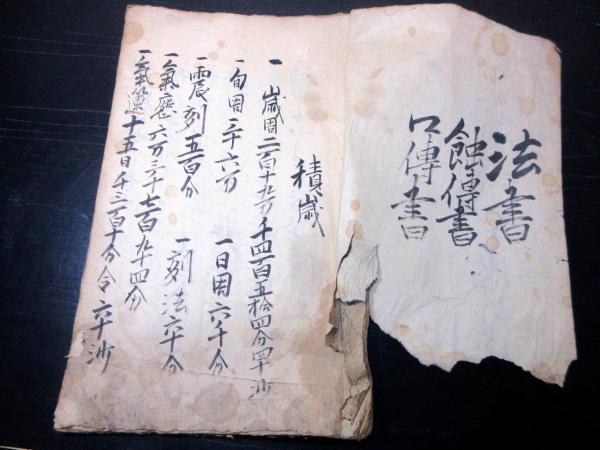 法書
蝕傳書
口傳書
積歳
一 歳周二百十九万千四百五拾四分四十沙
一旬周三十六万 一日周六千分
一震刻五百分 一刻法六十分
一氣應六万三千七百九十四分
一氣運十五日千三百十分令六十沙